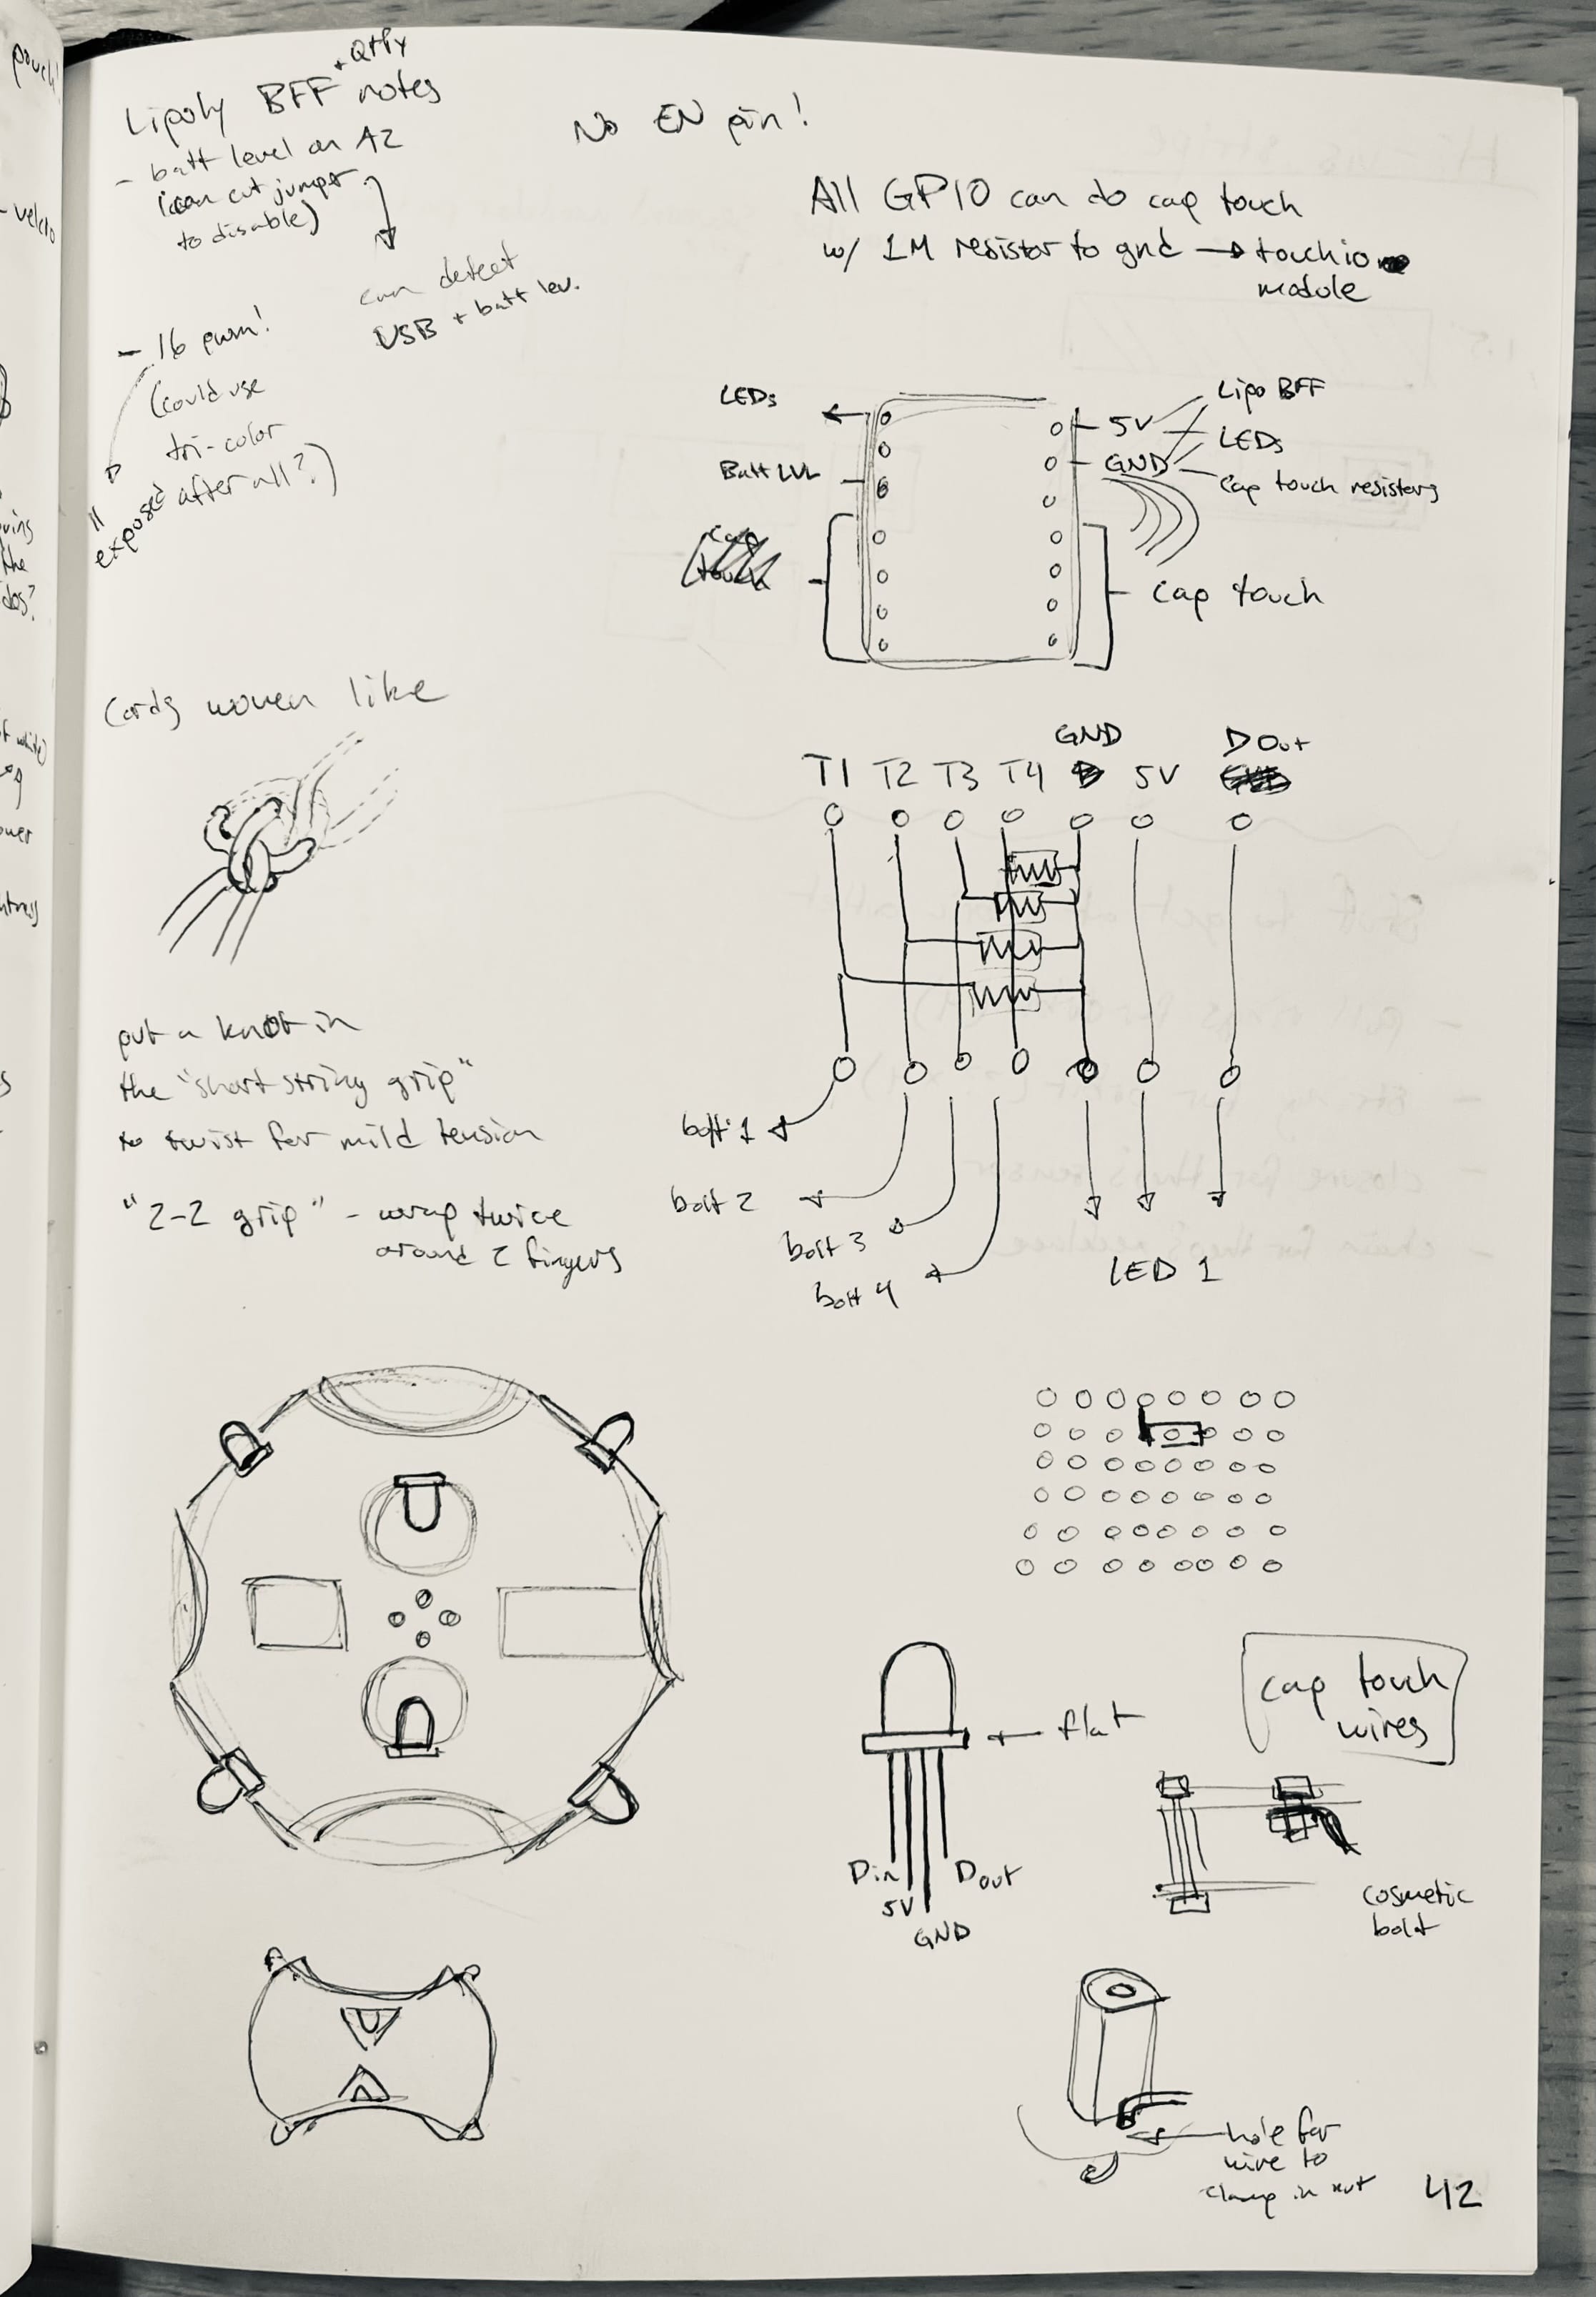 + QtPy
Lipoly BFF notes
- batt level on A2
(can cut jumper
to disable)
can detect
USB + batt lev.
- 16 pwm!
(could use
tri-color
after all?)
11
exposed
No EN pin!
All GPIO can do cap touch
w/ 1M resistor to gnd → touchio
module
LEDs
Batt LVL
5V
GND
Lipo BFF
LEDs
Cap touch resistors
Cap touch
Cords woven like
GND
D Out
T1 T2 T3 T4 5V
put a knot in
the "short string grip"
to twist for mild tension
"2-2 grip" - wrap twice
around 2 fingers
bolt 1
bolt 2
bolt 3
bolt 4
LED 1
← flat
Din
5V
GND
Dout
cap touch
wires
cosmetic
bolt
hole for
wire to
clamp in nut
42
pouch!
- velcro
the